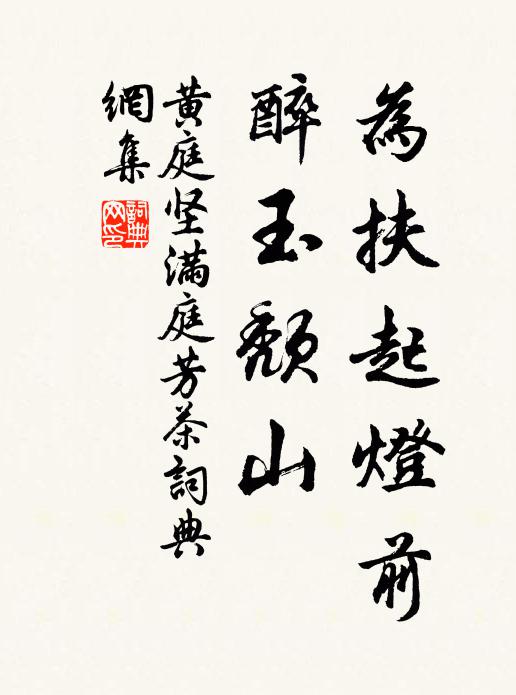 為扶起燈前
醉玉頹山
黃庭坚滿庭芳茶詞典
網集
詞典
网印